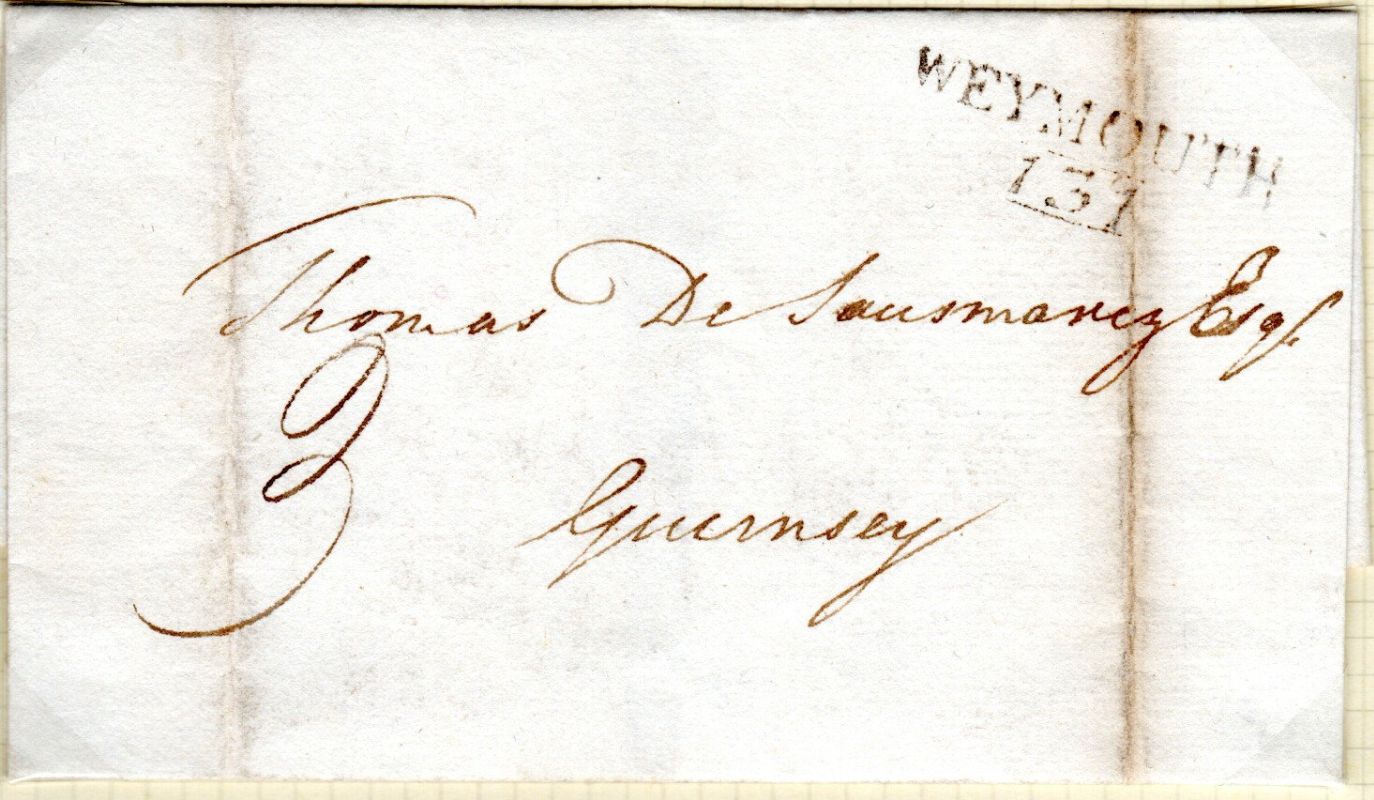 WEYMOUTH
137
Thomas De Sausmarez Esqr.
3
Guernsey